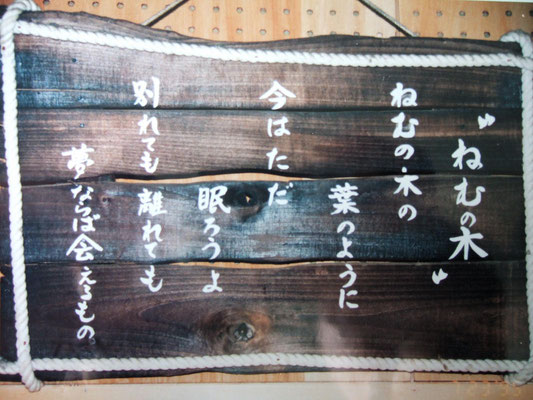 〝ねむの木〟
ねむの木の
葉のように
今はただ
眠ろうよ
別れても 離れても
夢ならば会えるもの